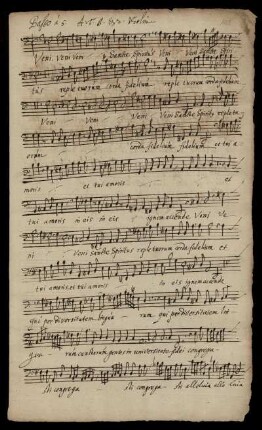 Basso à 5
Veni veni veni Sancte Spiritus Veni Veni Sancte Spiri
tus reple tuorum corda fidelium reple tuorum corda fidelium
Veni Veni Veni Veni Sancte Spiritus reple tu
orum corda fidelium fidelium et tui a
moris et tui amoris et
tui amoris in eis in eis ignem accende Veni Ve
ni Veni Sancte Spiritus reple tuorum corda fidelium et
tui amoris et tui amoris in eis ignem accende
qui per diversitatem lingua rum qui per diversitatem lin
gua rum cunctarum gentes in unitate fidei congrega
sti congrega sti congrega sti alleluia alleluia